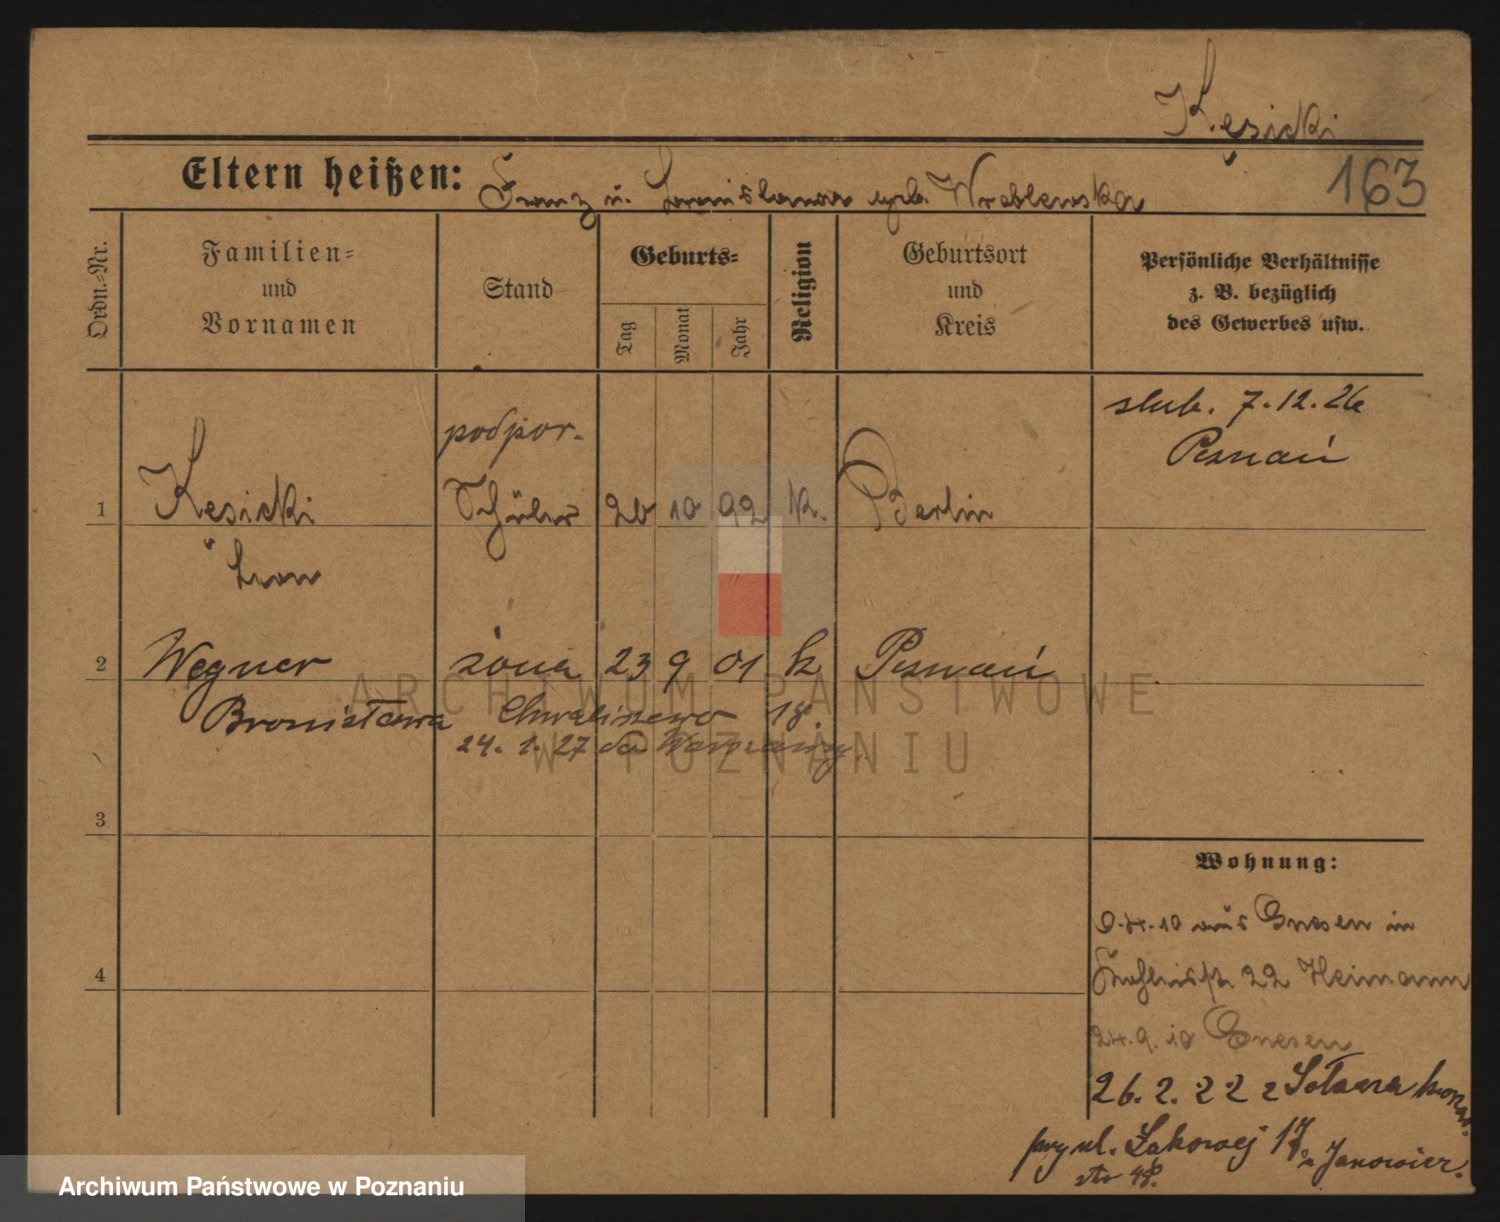 Kęsicki
163
Eltern heißen: Franz u. Stanislawa geb. Wroblewska
Ordn.=Nr.
Familien=
und
Vornamen
Stand
Geburts=
Tag
Monat
Jahr
Religion
Geburtsort
und
Kreis
Persönliche Verhältnisse
z. B. bezüglich
des Gewerbes usw.
ślub. 7.12.26
Poznań
podpor.
1 Kęsicki Schüler 20 10 92 k. Berlin
Leon
2 Wegner żona 23 9 01 k Poznań
Bronisława Chwaliszewo 18.
24. 1. 27 do Warszawy.
ARCHIWUM PAŃSTWOWE
W POZNANIU
3
4
Wohnung:
9.4.10 aus Gnesen in
22 Heimann
24.9.10 Gnesen
26. 2. 22 z Sołacza
przy ul. Łąkowej 17
Archiwum Państwowe w Poznaniu